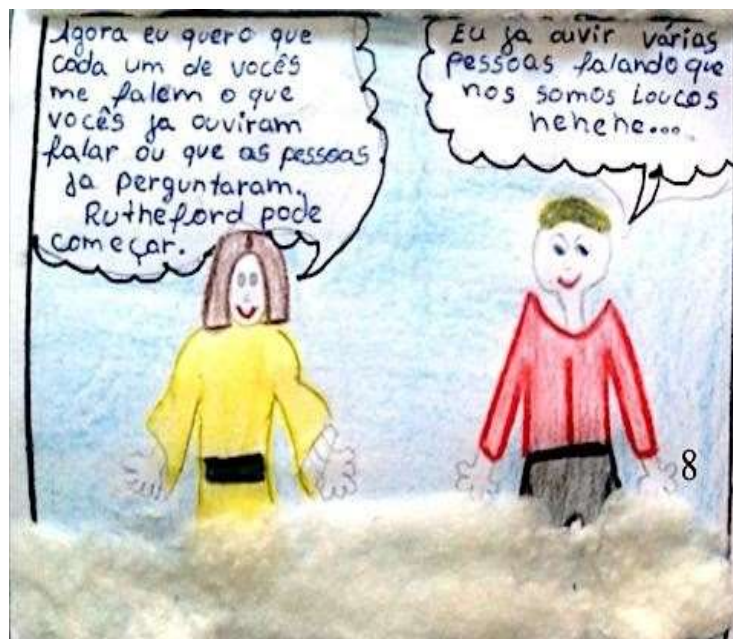 Agora eu quero que
cada um de vocês
me falem o que
vocês ja ouviram
falar ou que as pessoas
ja perguntaram.
Rutheford pode
começar.
Eu ja ouvir várias
pessoas falando que
nos somos loucos
hehehe...
8